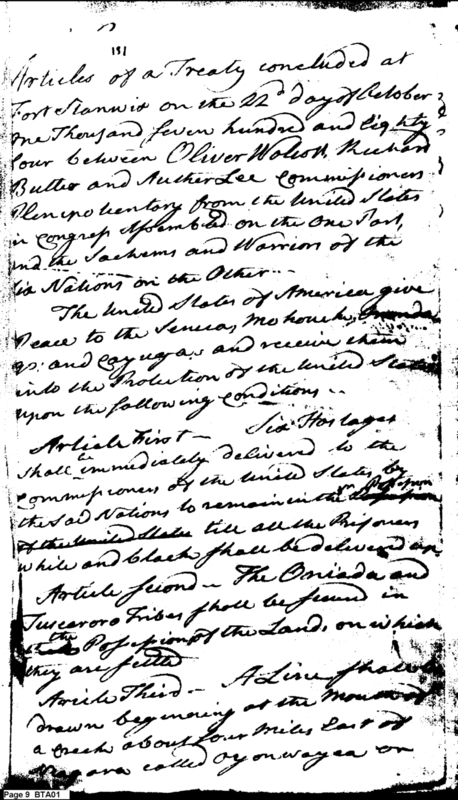 151
Articles of a Treaty concluded at
Fort Stanwix on the 22d day of October
One Thousand seven hundred and Eighty
four between Oliver Wolcott Richard
Butler and Auther Lee Commissioners
Plenipotentiary from the United States
in Congress Assembled on the One Part,
and the Sachems and Warriors of the
Six Nations on the Other
The United States of America give
Peace to the Senecas, Mohoucks, Ononda
gs: and Cayugas and receive them
into the Protection of the United States
upon the following Conditions
Article First — Six Hostages
shall be immediately delivered to the
Commissioners of the United States by
the said Nations to remain in the Possession
of the United States till all the Prisoners
white and black shall be delivered up
Article Second — The Oniada and
Tuscarora Tribes shall be secured in
the Possession of the Lands on which
they are settled
Article Third — A Line shall be
drawn beginning at the Mouth of
a Creek about four Miles East of
Niagara called Oyonwayea or
Page 9 BTA01